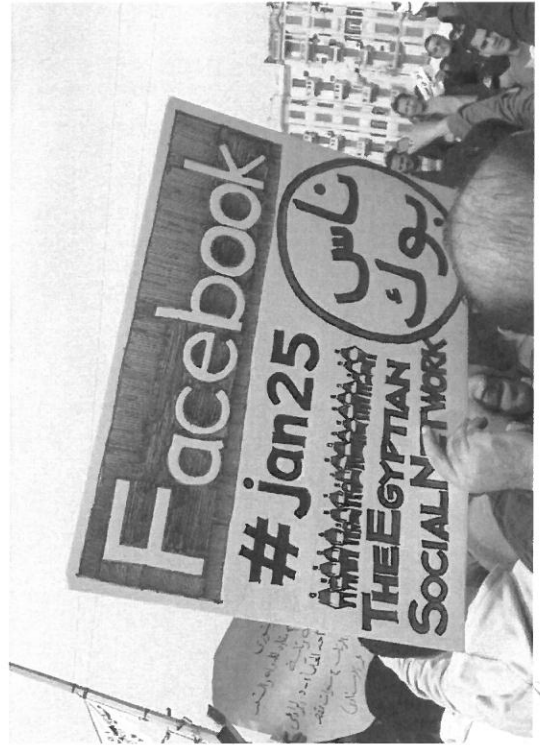 Facebook
#jan25
THE EGYPTIAN
SOCIAL NETWORK
ناس
بوك